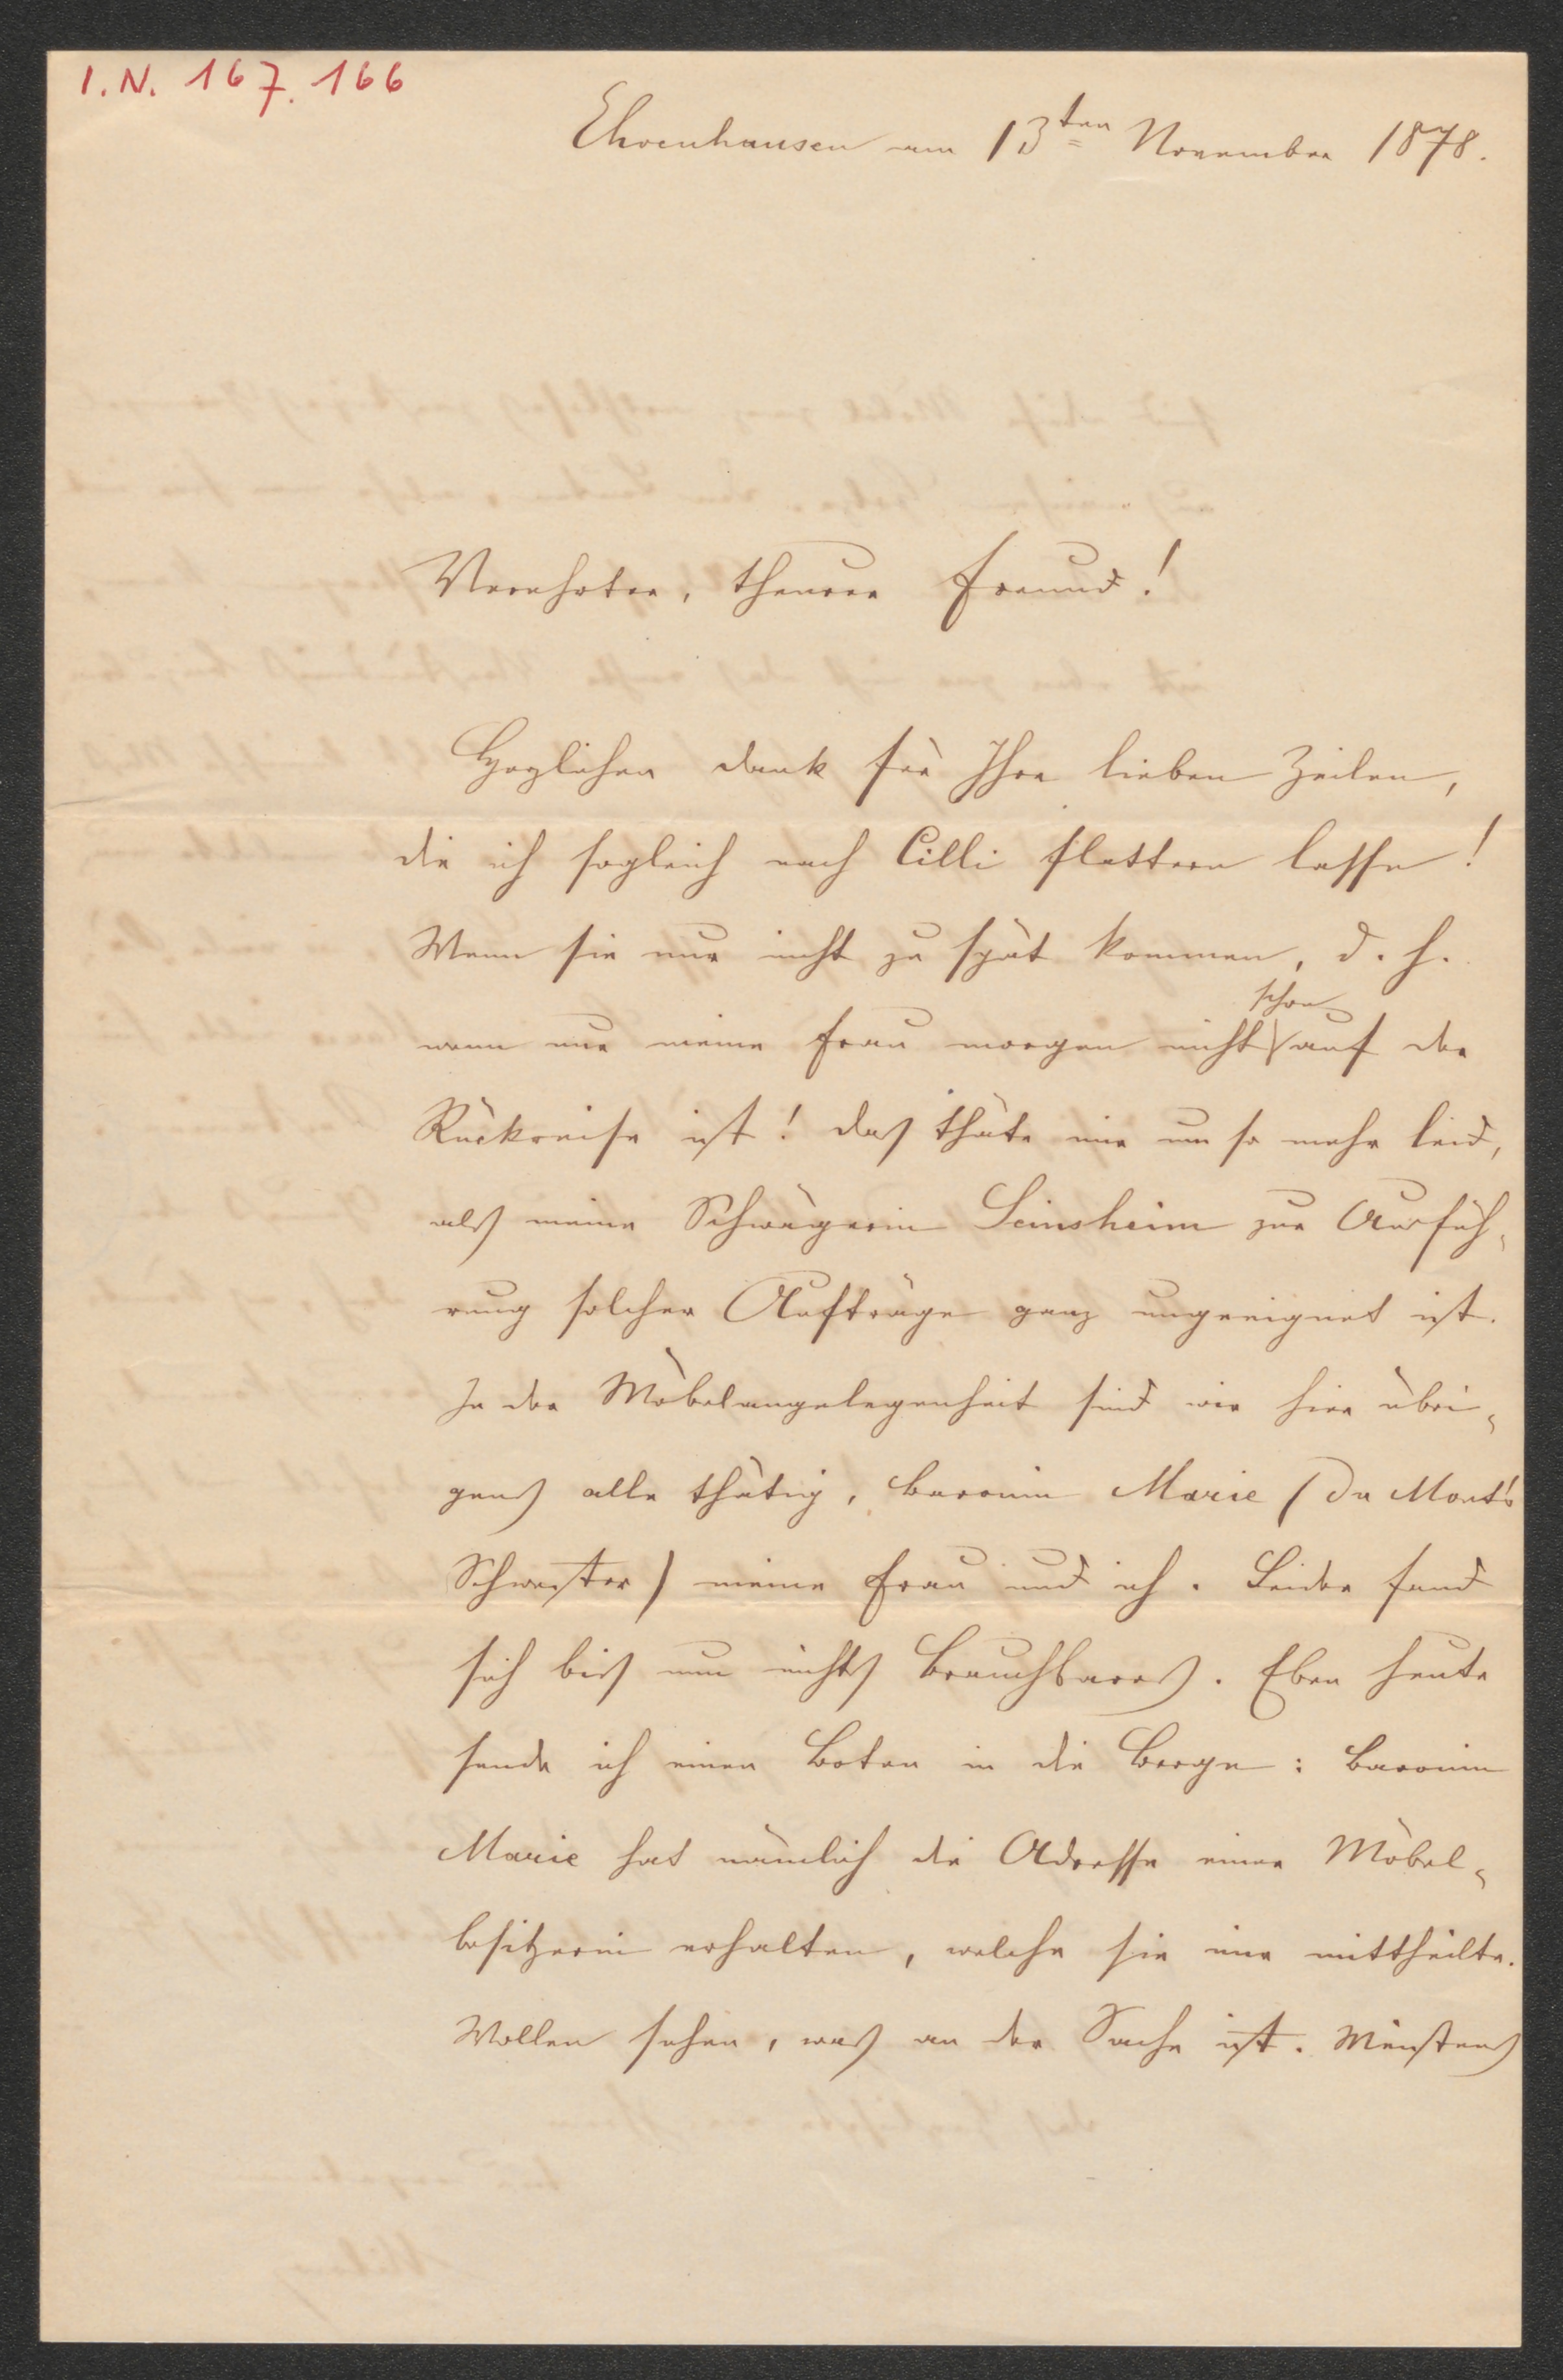 I.N. 167.166
Ehrenhausen am 13ten November 1878.
Verehrter, theurer Freund!
Herzlichen Dank für Ihre lieben Zeilen,
die ich sogleich nach Cilli flattern lasse!
Wenn sie nur nicht zu spät kommen, d. h.
schon
wenn nur meine Frau morgen nicht auf der
Rückreise ist! Das thäte mir um so mehr leid,
als meine Schwägerin Seinsheim zur Ausfüh-
rung solcher Aufträge ganz ungeeignet ist.
In der Möbelangelegenheit sind wir hier übri-
gens alle thätig, Baronin Marie (Du Mont's
Schwester) meine Frau und ich. Leider fand
sich bis nun nichts Brauchbares. Eben heute
sende ich einen Boten in die Berge: Baronin
Marie hat nämlich die Adresse einer Möbel-
besitzerin erhalten, welche sie mir mittheilte.
Wollen sehen, was an der Sache ist. Meistens